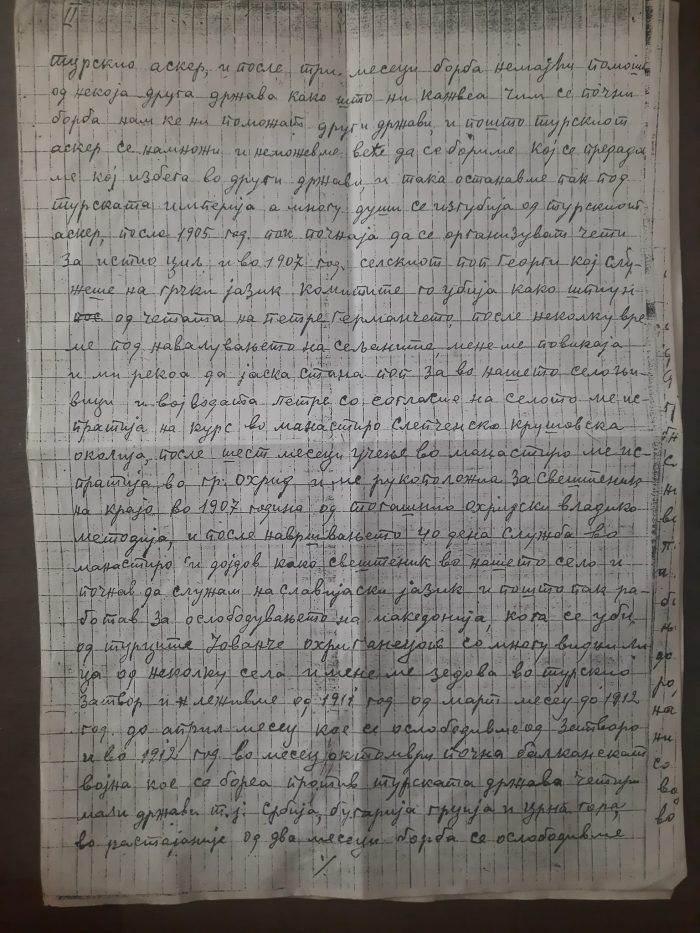 II
турскио аскер, и после три месеци борба немајќи помош
од некоја друга држава како што ни кажвеа чим се почни
борба нам ке ни поможат други држави, и пошто турскиот
аскер се намножи и неможевме веќе да се бориме кој се предада
ме кој избега во други држави, и така останавме пак под
турската империја а многу души се изгубија од турскиот
аскер, после 1905 год. пак почнаја да се организуват чети
за истио циљ и во 1907 год. селскиот поп Георги кој слу-
жеше на грчки јазик комитите го убија како шпиун
од четата на петре Германчето, после неколку вре
ме под навалувањето на сељаните, мене ме повикаја
и ми рекоа да јаска стана поп за во нашето село
вици и војводата петре со согласие на селото ме ис-
пратија на курс во манастиро слепченско крушовска
околија, после шест месеци учење во манастиро ме ис-
пратија во гр. охрид и ме рукоположиа за свештеник
на крајо во 1907 година од тогашнио охридски владика
методија, и после навршвањето 40 дена служба во
манастиро и дојдов како свештеник во нашето село и
почнав да служам на славијаски јазик и пошто пак ра-
ботав за ослободувањето на македонија, кога се уби
од турците Јованче охриѓанецот со многу видни ли
ца од неколку села и мене ме зедова во турскио
затвор и леживме од 1911 год од март месец до 1912
год. до април месец кое се ослободивме од затворо
и во 1912 год. во месец октомври почна балканскат
војна кое се бореа против турската држава четири
мали држави т.ј. Србија, бугарија грција и црна гора,
во растајаније од два месеци борба се ослободивме
./.